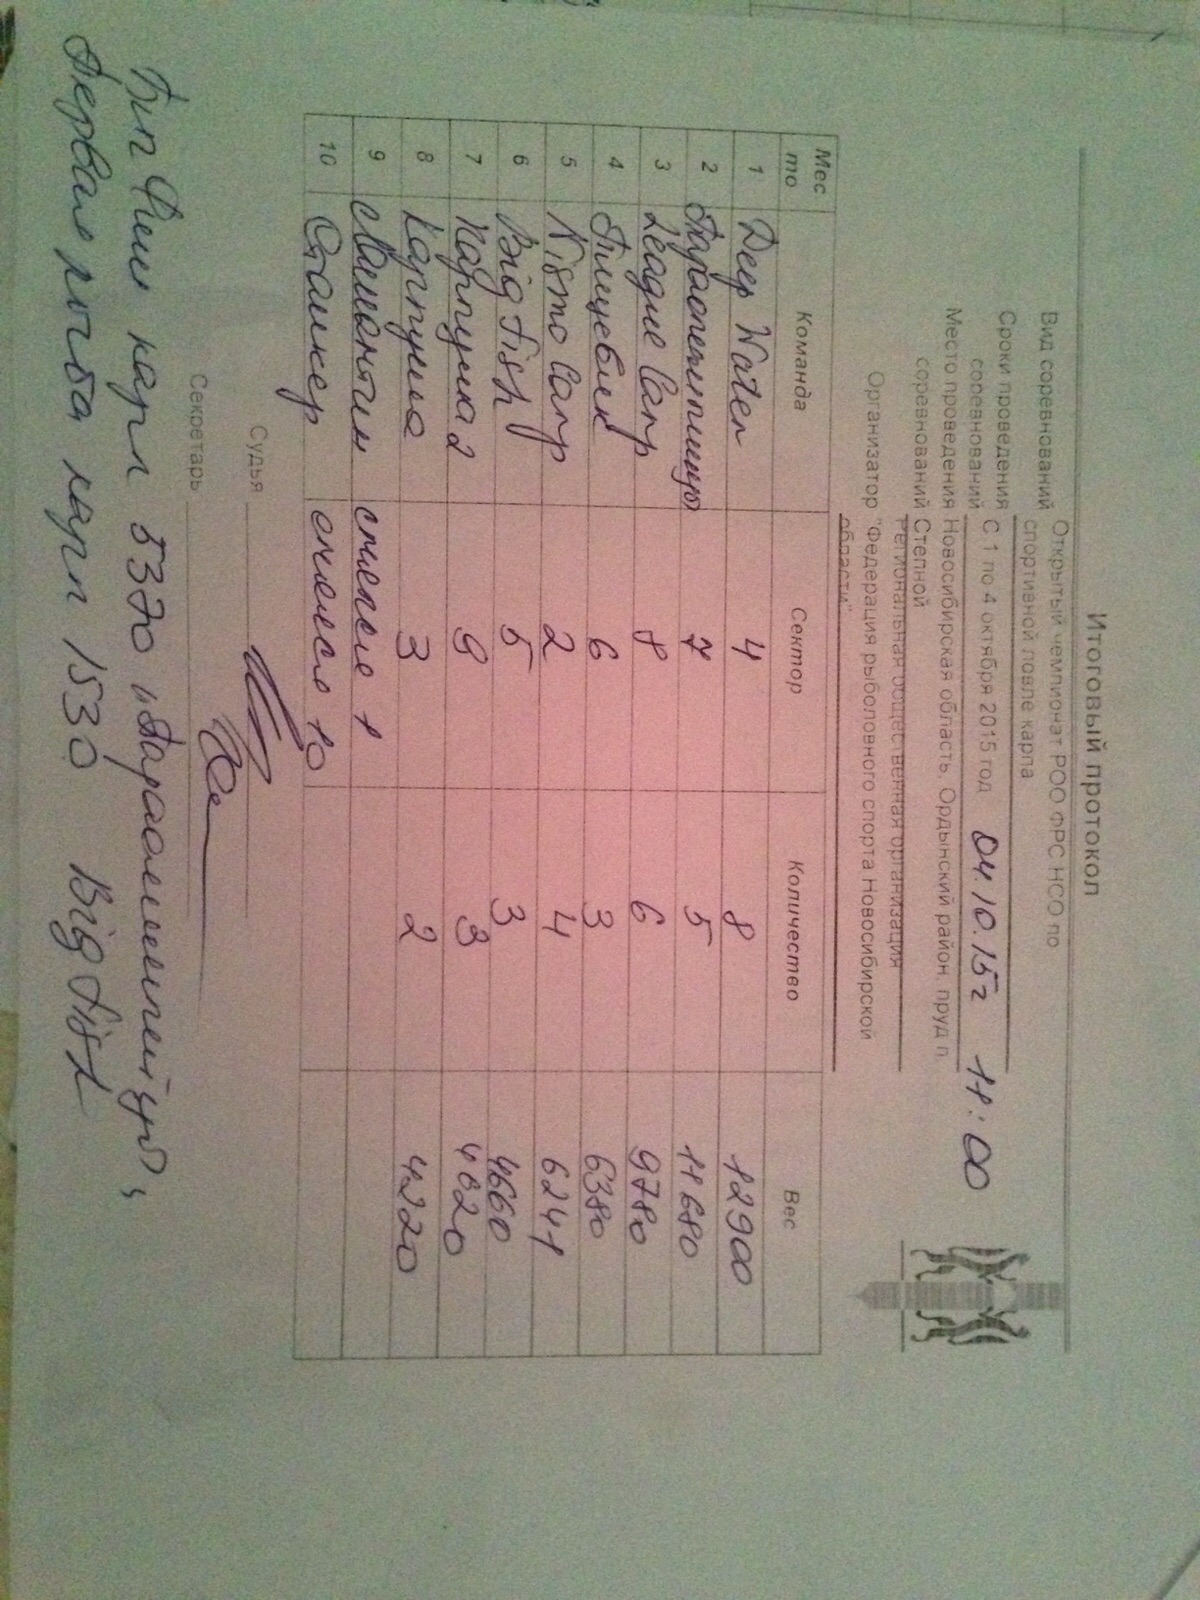 Итоговый протокол
Вид соревнований Открытый чемпионат РОО ФРС НСО по
спортивной ловле карпа
Сроки проведения
соревнований С 1 по 4 октября 2015 год 04.10.15г 11:00
Место проведения Новосибирская область, Ордынский район, пруд п.
соревнований Степной
Региональная общественная организация
Организатор "Федерация рыболовного спорта Новосибирской
области"
Мес то Команда Сектор Количество Вес
1 Deep Water 4 8 12900
2 7 5 11680
3 League Carp 8 6 9780
4 6 3 6380
5 Nismo Carp 2 4 6241
6 Big Fish 5 3 4660
7 Карпуша 2 9 3 4620
8 Карпуша 3 2 4220
9 снялись 1
10 Сталкер снялись 10
Судья
Секретарь
Биг Фиш карп 5370
Первая рыба карп 1530 Big Fish